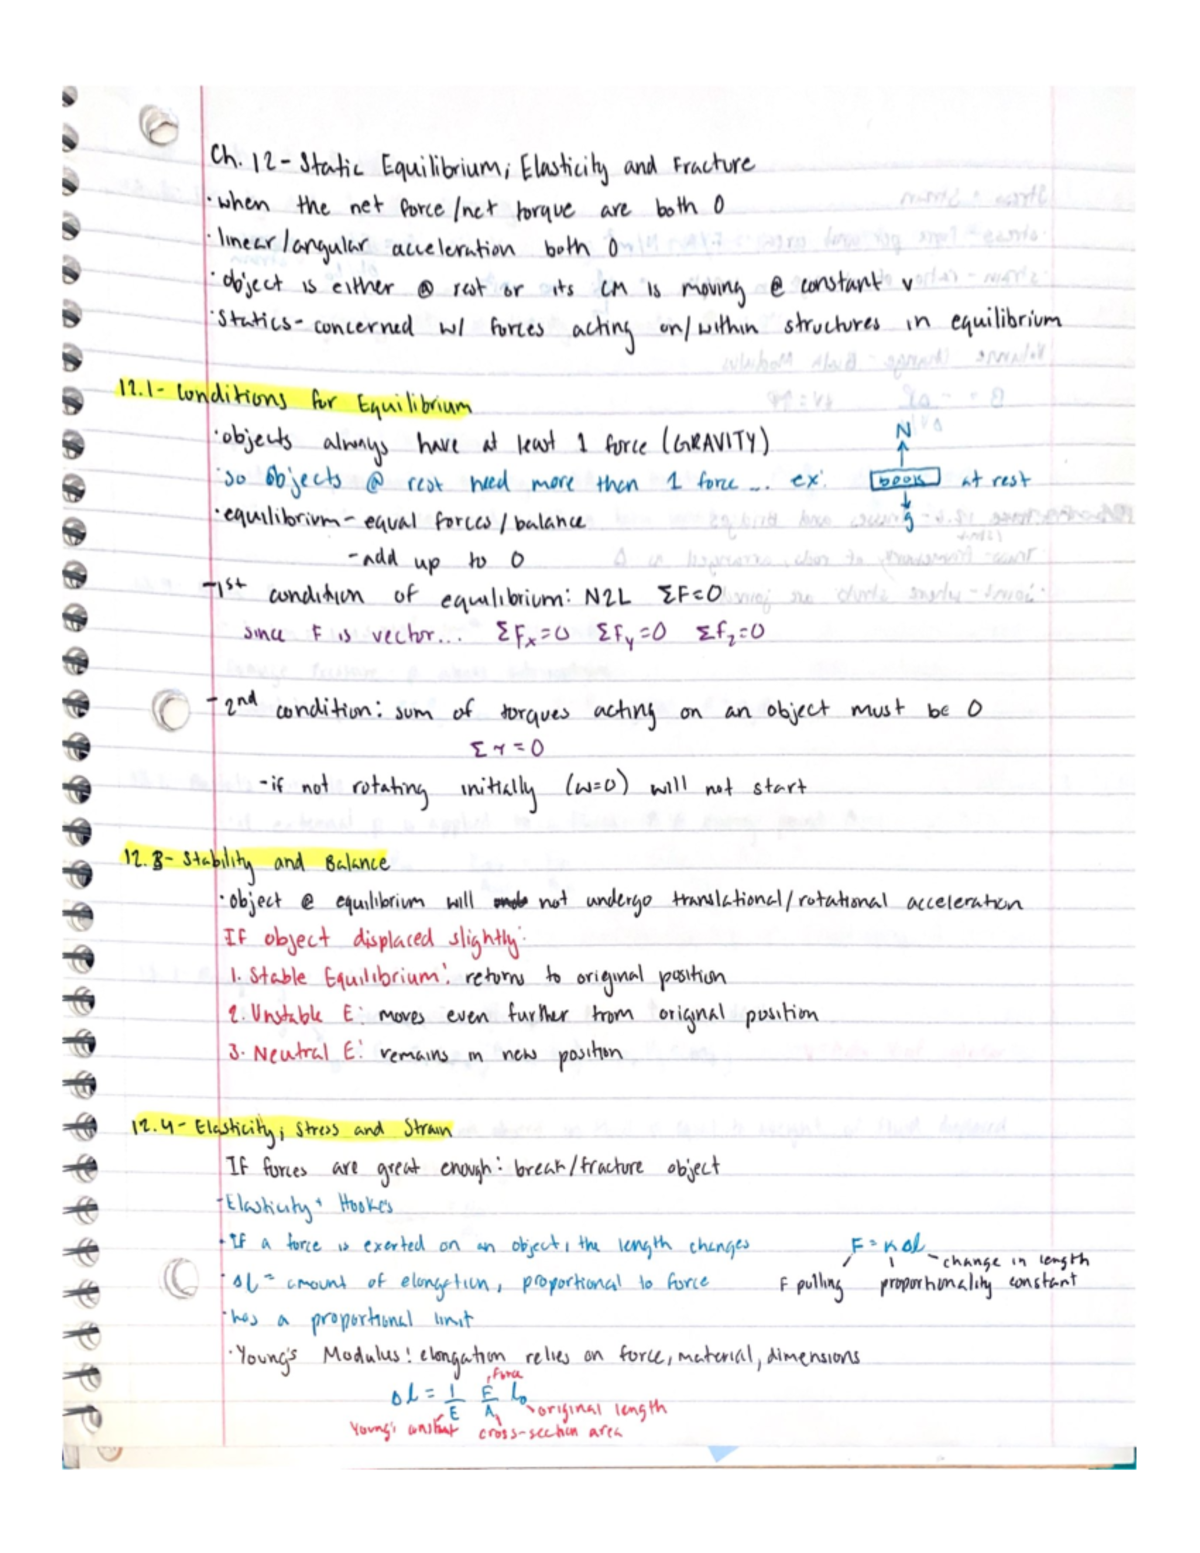 Ch. 12 - Static Equilibrium; Elasticity and Fracture
· when the net force/net torque are both 0
· linear/angular acceleration both 0
· object is either @ rest or its CM is moving @ constant v
· Statics - concerned w/ forces acting on/within structures in equilibrium
12.1 - Conditions for Equilibrium
· objects always have at least 1 force (GRAVITY)
· so objects @ rest need more than 1 force ... ex:
N
book at rest
g
· equilibrium - equal forces / balance
- add up to 0
- 1st condition of equilibrium: N2L ΣF=0
since F is vector... ΣFx=0 ΣFy=0 ΣFz=0
- 2nd condition: sum of torques acting on an object must be 0
Στ=0
- if not rotating initially (ω=0) will not start
12.3 - Stability and Balance
· object @ equilibrium will not undergo translational/rotational acceleration
If object displaced slightly:
1. Stable Equilibrium: returns to original position
2. Unstable E: moves even further from original position
3. Neutral E: remains in new position
12.4 - Elasticity; Stress and Strain
If forces are great enough: break/fracture object
- Elasticity + Hooke's
· If a force is exerted on an object, the length changes
F = kΔl
change in length
· Δl = amount of elongation, proportional to force
F pulling proportionality constant
· has a proportional limit
· Young's Modulus: elongation relies on force, material, dimensions
force
Δl = 1/E F/A l₀
original length
Young's constant cross-section area